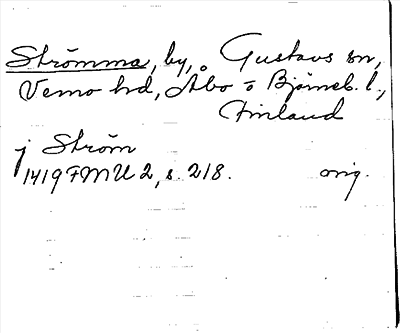 Strömma, by, Gustavs sn,
Vemo hd, Åbo o Björneb. l.,
Finland
j Ström
1419 FMU 2, s. 218. orig.